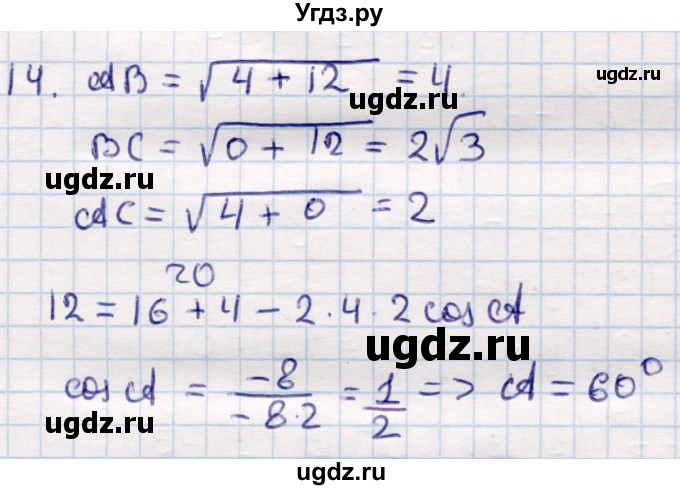 Угдз.ру
14. AB = √(4 + 12) = 4
ugdz.ru
BC = √(0 + 12) = 2√3
ugdz.ru
AC = √(4 + 0) = 2
20
12 = 16 + 4 − 2·4·2 cos A
ugdz.ru
cos A = −8/(−8·2) = 1/2 => A = 60°
ugdz.ru
ugdz.ru